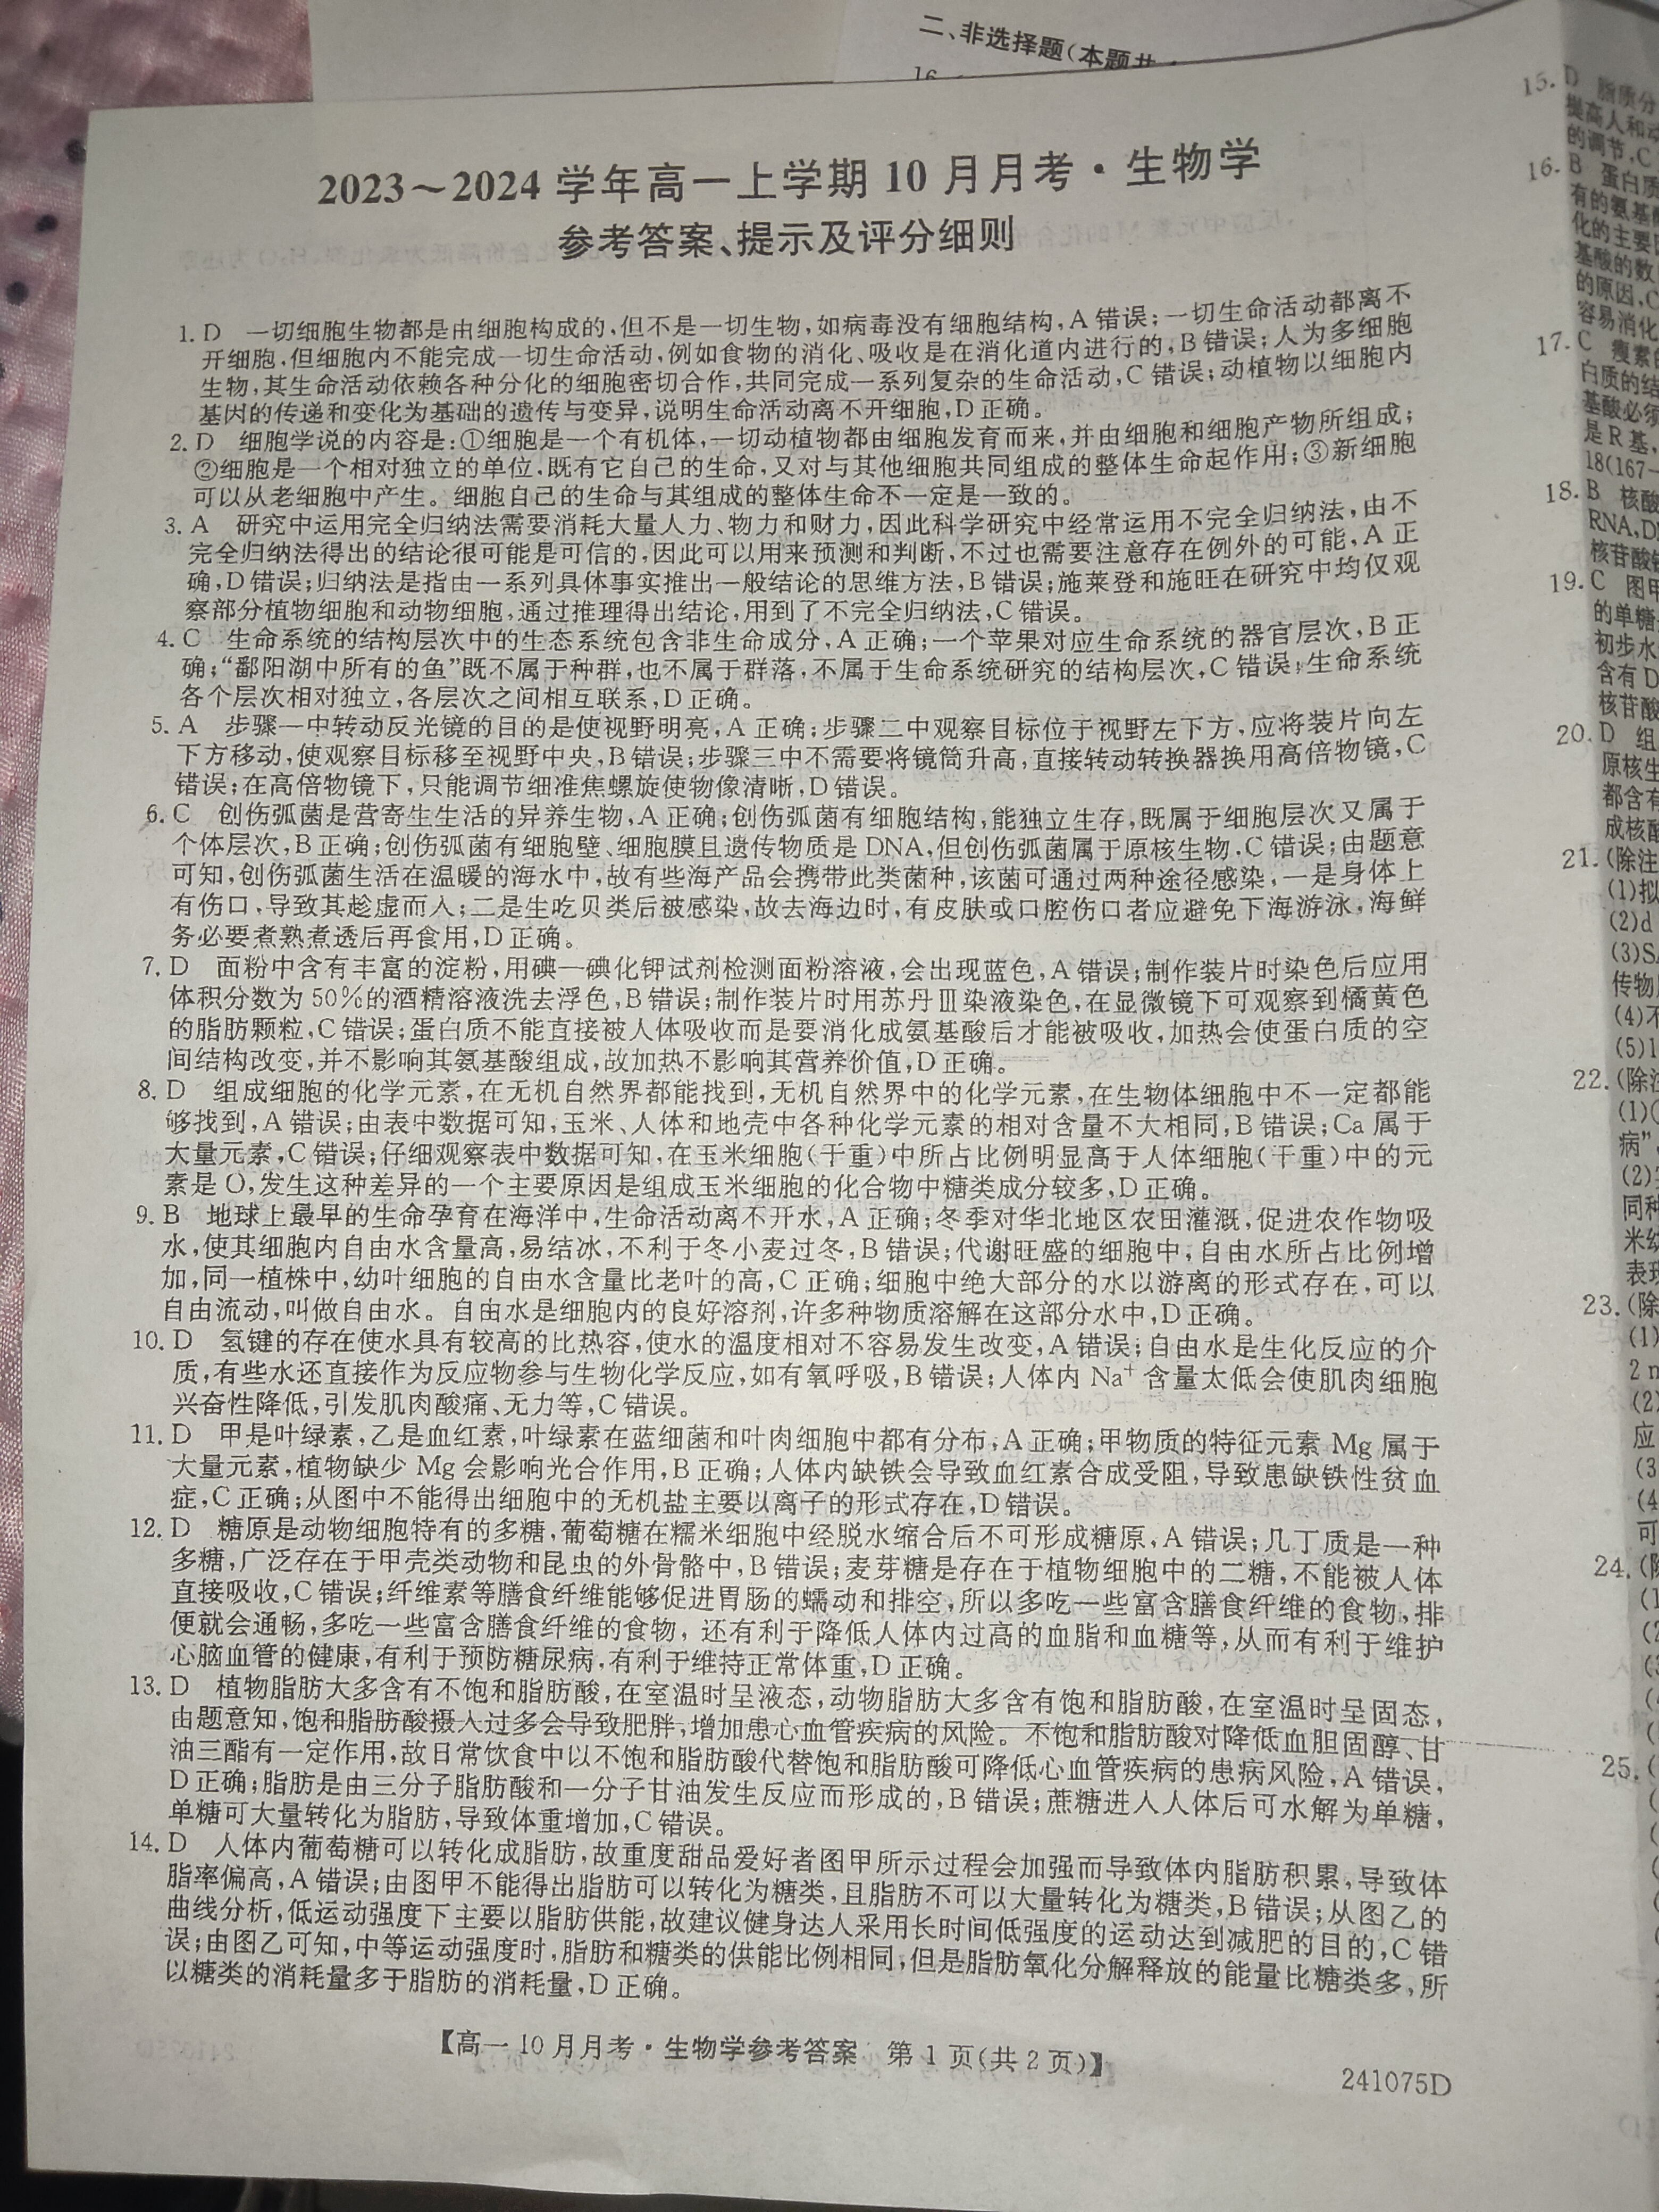 二、非选择题(本题共
16.
2023～2024 学年高一上学期 10 月月考·生物学
参考答案、提示及评分细则
1. D 一切细胞生物都是由细胞构成的,但不是一切生物,如病毒没有细胞结构,A 错误;一切生命活动都离不
开细胞,但细胞内不能完成一切生命活动,例如食物的消化、吸收是在消化道内进行的,B 错误;人为多细胞
生物,其生命活动依赖各种分化的细胞密切合作,共同完成一系列复杂的生命活动,C 错误;动植物以细胞内
基因的传递和变化为基础的遗传与变异,说明生命活动离不开细胞,D 正确。
2. D 细胞学说的内容是:①细胞是一个有机体,一切动植物都由细胞发育而来,并由细胞和细胞产物所组成;
②细胞是一个相对独立的单位,既有它自己的生命,又对与其他细胞共同组成的整体生命起作用;③新细胞
可以从老细胞中产生。细胞自己的生命与其组成的整体生命不一定是一致的。
3. A 研究中运用完全归纳法需要消耗大量人力、物力和财力,因此科学研究中经常运用不完全归纳法,由不
完全归纳法得出的结论很可能是可信的,因此可以用来预测和判断,不过也需要注意存在例外的可能,A 正
确,D 错误;归纳法是指由一系列具体事实推出一般结论的思维方法,B 错误;施莱登和施旺在研究中均仅观
察部分植物细胞和动物细胞,通过推理得出结论,用到了不完全归纳法,C 错误。
4. C 生命系统的结构层次中的生态系统包含非生命成分,A 正确;一个苹果对应生命系统的器官层次,B 正
确;“鄱阳湖中所有的鱼”既不属于种群,也不属于群落,不属于生命系统研究的结构层次,C 错误;生命系统
各个层次相对独立,各层次之间相互联系,D 正确。
5. A 步骤一中转动反光镜的目的是使视野明亮,A 正确;步骤二中观察目标位于视野左下方,应将装片向左
下方移动,使观察目标移至视野中央,B 错误;步骤三中不需要将镜筒升高,直接转动转换器换用高倍物镜,C
错误;在高倍物镜下,只能调节细准焦螺旋使物像清晰,D 错误。
6. C 创伤弧菌是营寄生生活的异养生物,A 正确;创伤弧菌有细胞结构,能独立生存,既属于细胞层次又属于
个体层次,B 正确;创伤弧菌有细胞壁、细胞膜且遗传物质是 DNA,但创伤弧菌属于原核生物,C 错误;由题意
可知,创伤弧菌生活在温暖的海水中,故有些海产品会携带此类菌种,该菌可通过两种途径感染,一是身体上
有伤口,导致其趁虚而入;二是生吃贝类后被感染,故去海边时,有皮肤或口腔伤口者应避免下海游泳,海鲜
务必要煮熟煮透后再食用,D 正确。
7. D 面粉中含有丰富的淀粉,用碘—碘化钾试剂检测面粉溶液,会出现蓝色,A 错误;制作装片时染色后应用
体积分数为 50%的酒精溶液洗去浮色,B 错误;制作装片时用苏丹Ⅲ染液染色,在显微镜下可观察到橘黄色
的脂肪颗粒,C 错误;蛋白质不能直接被人体吸收而是要消化成氨基酸后才能被吸收,加热会使蛋白质的空
间结构改变,并不影响其氨基酸组成,故加热不影响其营养价值,D 正确。
8. D 组成细胞的化学元素,在无机自然界都能找到,无机自然界中的化学元素,在生物体细胞中不一定都能
够找到,A 错误;由表中数据可知,玉米、人体和地壳中各种化学元素的相对含量不大相同,B 错误;Ca 属于
大量元素,C 错误;仔细观察表中数据可知,在玉米细胞(干重)中所占比例明显高于人体细胞(干重)中的元
素是 O,发生这种差异的一个主要原因是组成玉米细胞的化合物中糖类成分较多,D 正确。
9. B 地球上最早的生命孕育在海洋中,生命活动离不开水,A 正确;冬季对华北地区农田灌溉,促进农作物吸
水,使其细胞内自由水含量高,易结冰,不利于冬小麦过冬,B 错误;代谢旺盛的细胞中,自由水所占比例增
加,同一植株中,幼叶细胞的自由水含量比老叶的高,C 正确;细胞中绝大部分的水以游离的形式存在,可以
自由流动,叫做自由水。自由水是细胞内的良好溶剂,许多种物质溶解在这部分水中,D 正确。
10. D 氢键的存在使水具有较高的比热容,使水的温度相对不容易发生改变,A 错误;自由水是生化反应的介
质,有些水还直接作为反应物参与生物化学反应,如有氧呼吸,B 错误;人体内 Na⁺ 含量太低会使肌肉细胞
兴奋性降低,引发肌肉酸痛、无力等,C 错误。
11. D 甲是叶绿素,乙是血红素,叶绿素在蓝细菌和叶肉细胞中都有分布,A 正确;甲物质的特征元素 Mg 属于
大量元素,植物缺少 Mg 会影响光合作用,B 正确;人体内缺铁会导致血红素合成受阻,导致患缺铁性贫血
症,C 正确;从图中不能得出细胞中的无机盐主要以离子的形式存在,D 错误。
12. D 糖原是动物细胞特有的多糖,葡萄糖在糯米细胞中经脱水缩合后不可形成糖原,A 错误;几丁质是一种
多糖,广泛存在于甲壳类动物和昆虫的外骨骼中,B 错误;麦芽糖是存在于植物细胞中的二糖,不能被人体
直接吸收,C 错误;纤维素等膳食纤维能够促进胃肠的蠕动和排空,所以多吃一些富含膳食纤维的食物,排
便就会通畅,多吃一些富含膳食纤维的食物,还有利于降低人体内过高的血脂和血糖等,从而有利于维护
心脑血管的健康,有利于预防糖尿病,有利于维持正常体重,D 正确。
13. D 植物脂肪大多含有不饱和脂肪酸,在室温时呈液态,动物脂肪大多含有饱和脂肪酸,在室温时呈固态,
由题意知,饱和脂肪酸摄入过多会导致肥胖,增加患心血管疾病的风险。不饱和脂肪酸对降低血胆固醇、甘
油三酯有一定作用,故日常饮食中以不饱和脂肪酸代替饱和脂肪酸可降低心血管疾病的患病风险,A 错误,
D 正确;脂肪是由三分子脂肪酸和一分子甘油发生反应而形成的,B 错误;蔗糖进入人体后可水解为单糖,
单糖可大量转化为脂肪,导致体重增加,C 错误。
14. D 人体内葡萄糖可以转化成脂肪,故重度甜品爱好者图甲所示过程会加强而导致体内脂肪积累,导致体
脂率偏高,A 错误;由图甲不能得出脂肪可以转化为糖类,且脂肪不可以大量转化为糖类,B 错误;从图乙的
曲线分析,低运动强度下主要以脂肪供能,故建议健身达人采用长时间低强度的运动达到减肥的目的,C 错
误;由图乙可知,中等运动强度时,脂肪和糖类的供能比例相同,但是脂肪氧化分解释放的能量比糖类多,所
以糖类的消耗量多于脂肪的消耗量,D 正确。
【高一 10 月月考·生物学参考答案 第 1 页(共 2 页)】
241075D
15. D 脂质分
提高人和动
的调节,C
16. B 蛋白质
有的氨基酸
化的主要
基酸的数
的原因,C
容易消化
17. C 瘦素
白质的结
基酸必须
是 R 基,
18(167-
18. B 核酸
RNA,D
核苷酸
19. C 图甲
的单糖
初步水
含有 D
核苷酸
20. D 组
原核生
都含有
成核酸
21. (除注
(1)拟
(2)d
(3)S
传物
(4)不
(5)1
22. (除注
(1)
病”
(2)
同种
米幼
表现
23. (除
(1)
2 m
(2)
应
(3
(4
可
24. (除
(1
(2
(3
25. (